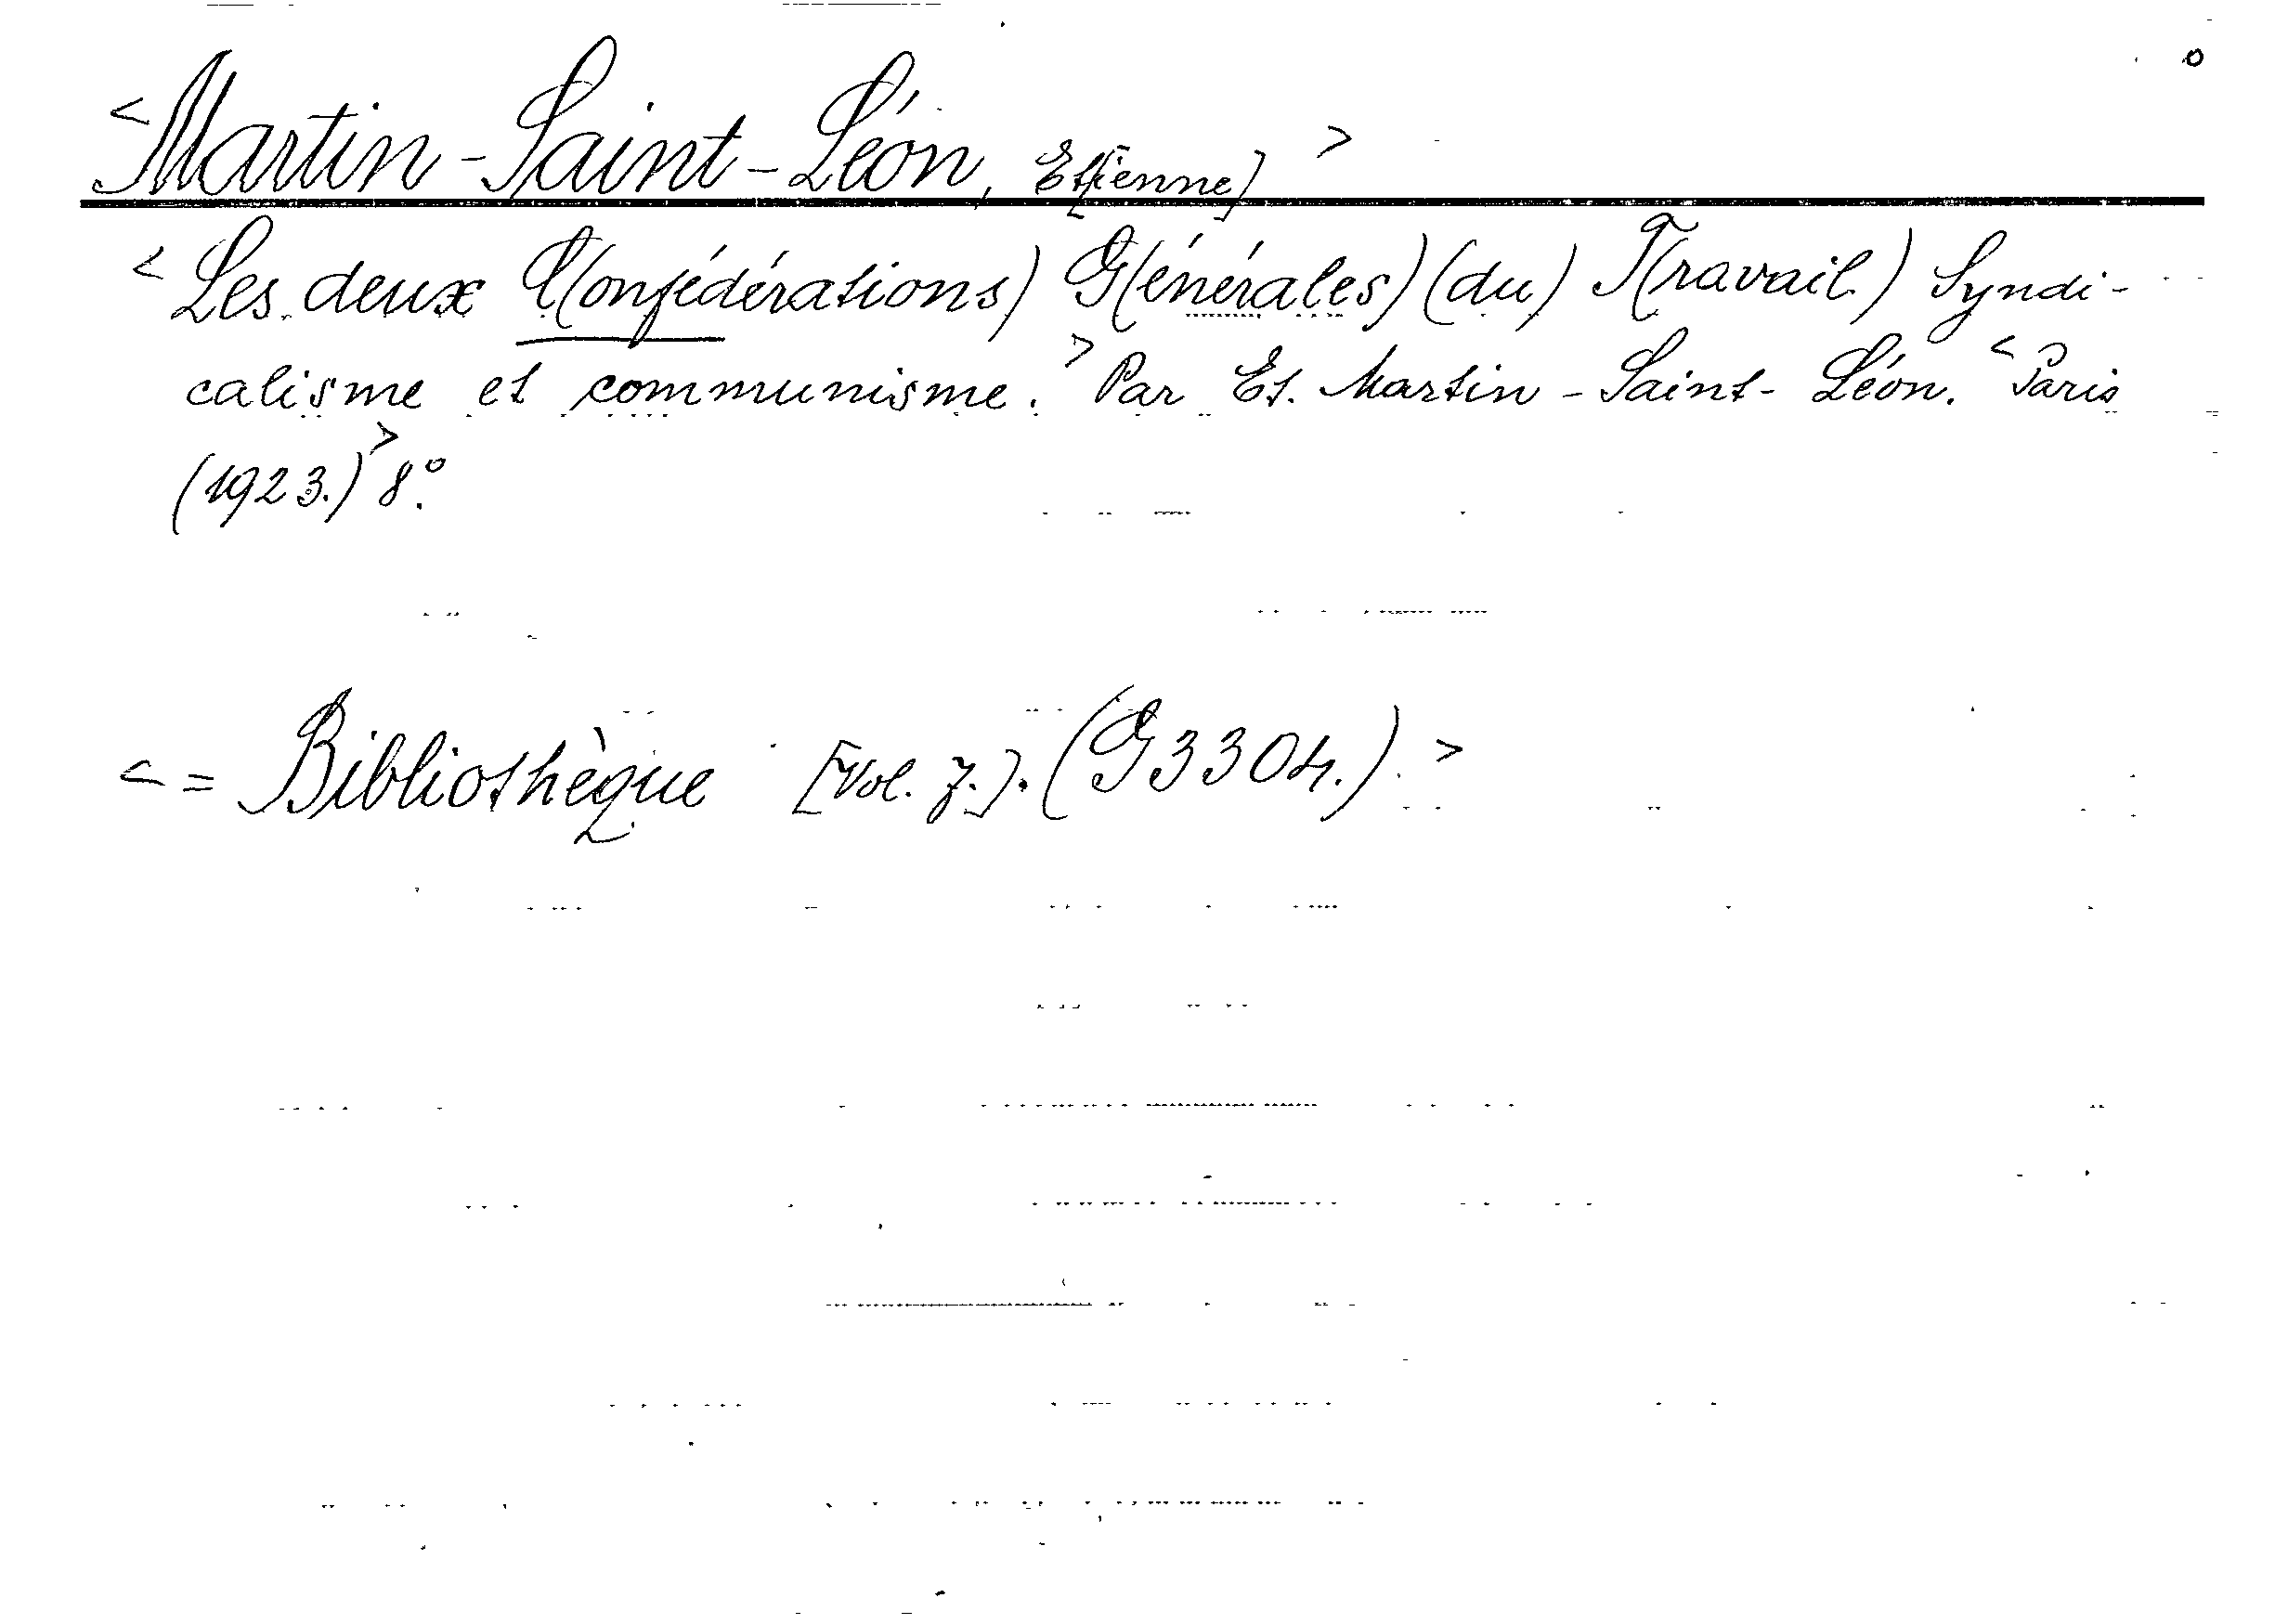 <Martin-Saint-Léon, Et[ienne]>
<Les deux C(onfédérations) G(énérales) (du) T(ravail.) Syndi-
calisme et communisme.> Par Et. Martin-Saint-Léon. <Paris
(1923.)> 8°.
<= Bibliothèque [Vol. 7.]. (G3304.).>